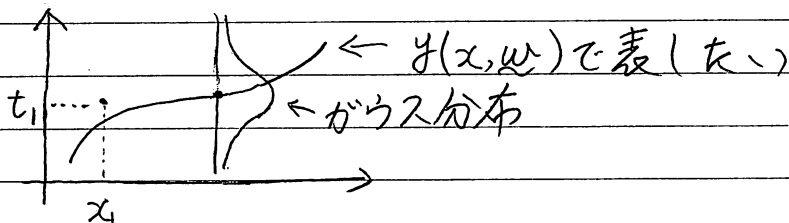 ← y(x,w)で表したい
t₁
←ガウス分布
x₁